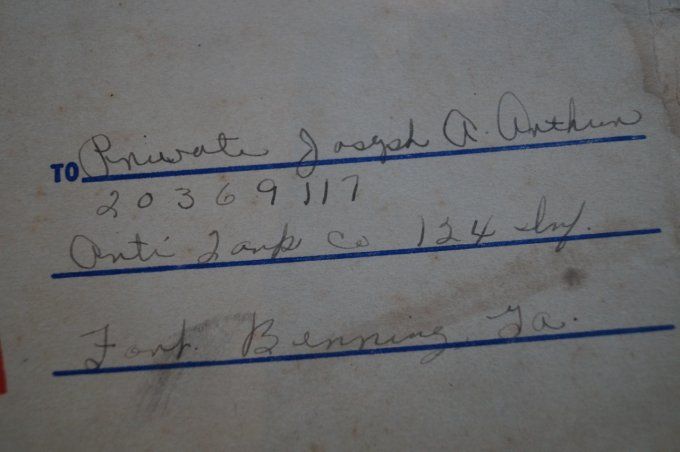 TO Private Joseph A. Arthur
20369117
Anti Tank Co 124 Inf.
Fort. Benning, Ga.